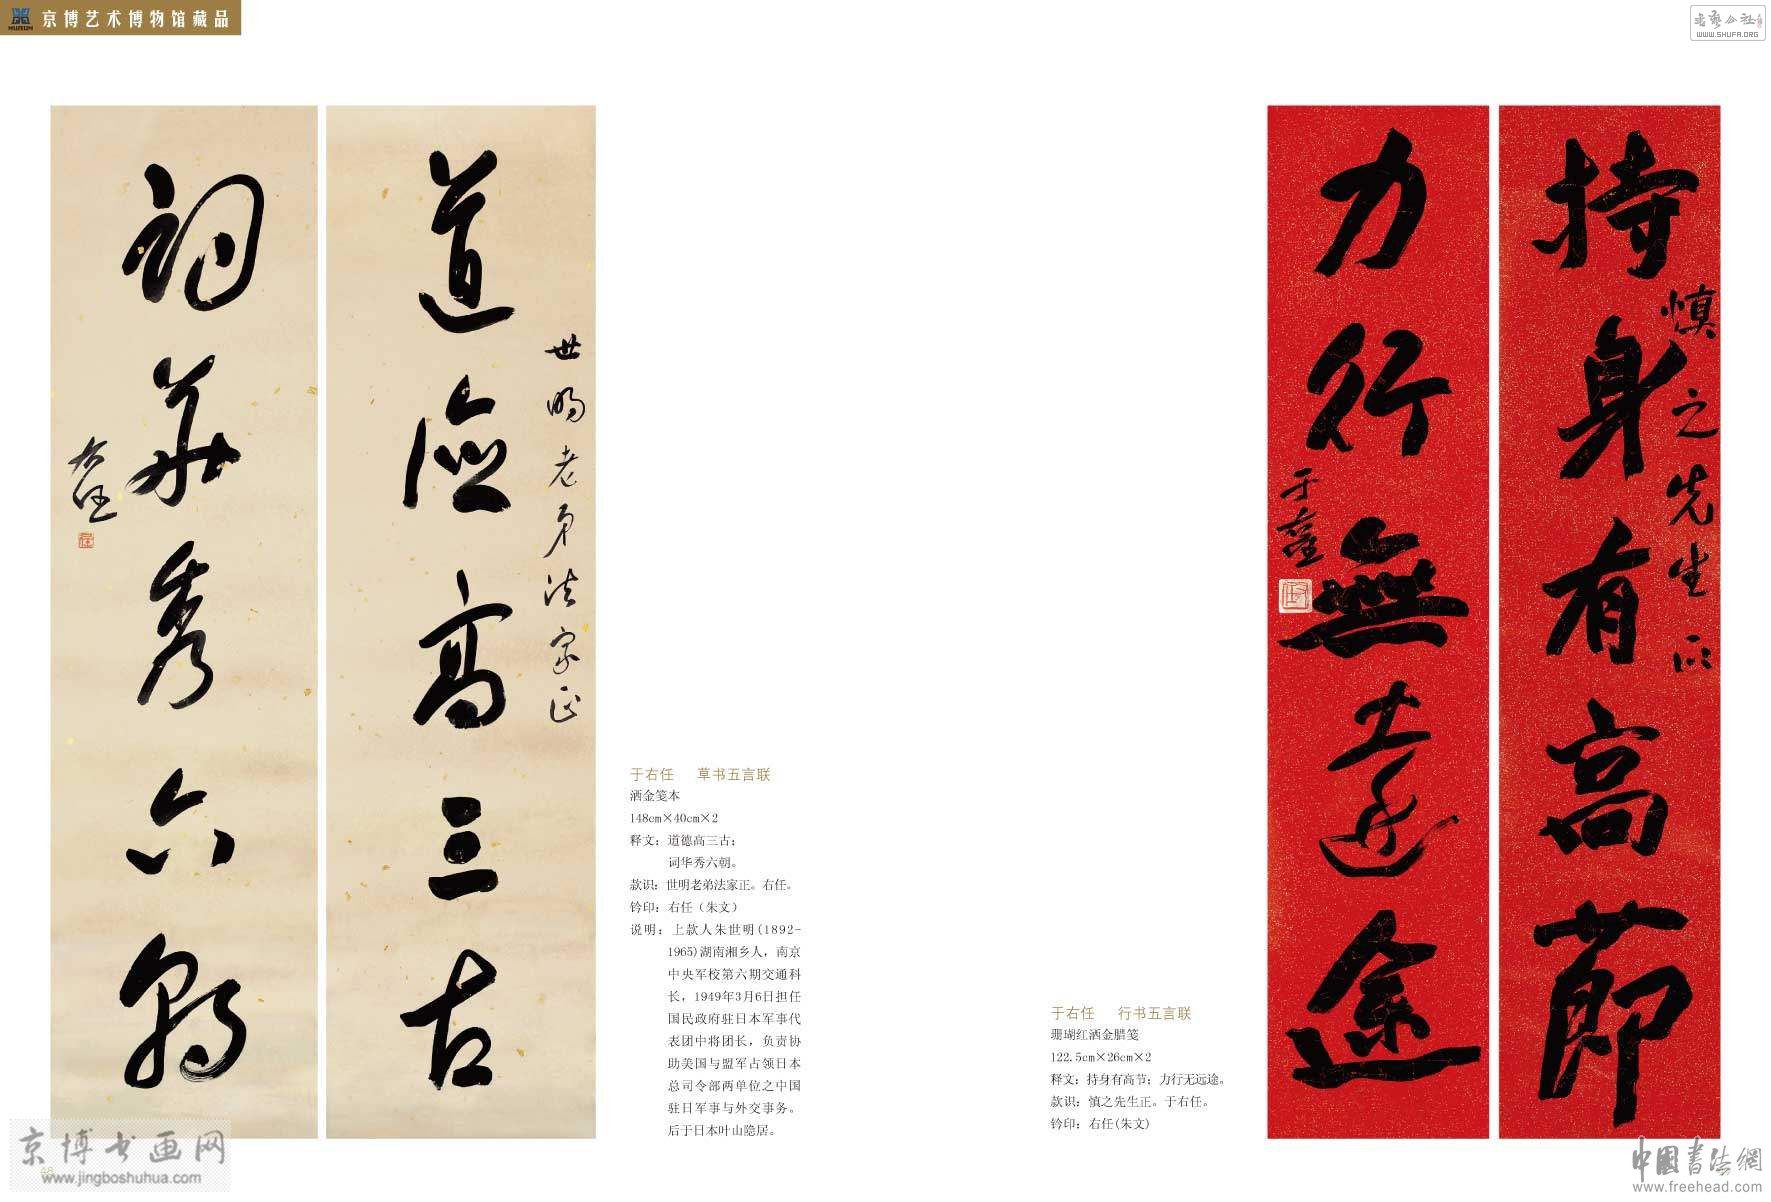 京博艺术博物馆藏品
MUSEUM
WWW.SHUFA.ORG
道德高三古
世明老弟法家正
词华秀六朝
右任
于右任 草书五言联
洒金笺本
148cm×40cm×2
释文：道德高三古；
词华秀六朝。
款识：世明老弟法家正。右任。
钤印：右任（朱文）
说明：上款人朱世明(1892-
1965)湖南湘乡人，南京
中央军校第六期交通科
长，1949年3月6日担任
国民政府驻日本军事代
表团中将团长，负责协
助美国与盟军占领日本
总司令部两单位之中国
驻日军事与外交事务。
后于日本叶山隐居。
持身有高節
慎之先生正
力行無遠途
于右任
于右任 行书五言联
珊瑚红洒金腊笺
122.5cm×26cm×2
释文：持身有高节；力行无远途。
款识：慎之先生正。于右任。
钤印：右任(朱文)
京博书画网
48
www.jingboshuhua.com
中國書法網
www.freehead.com